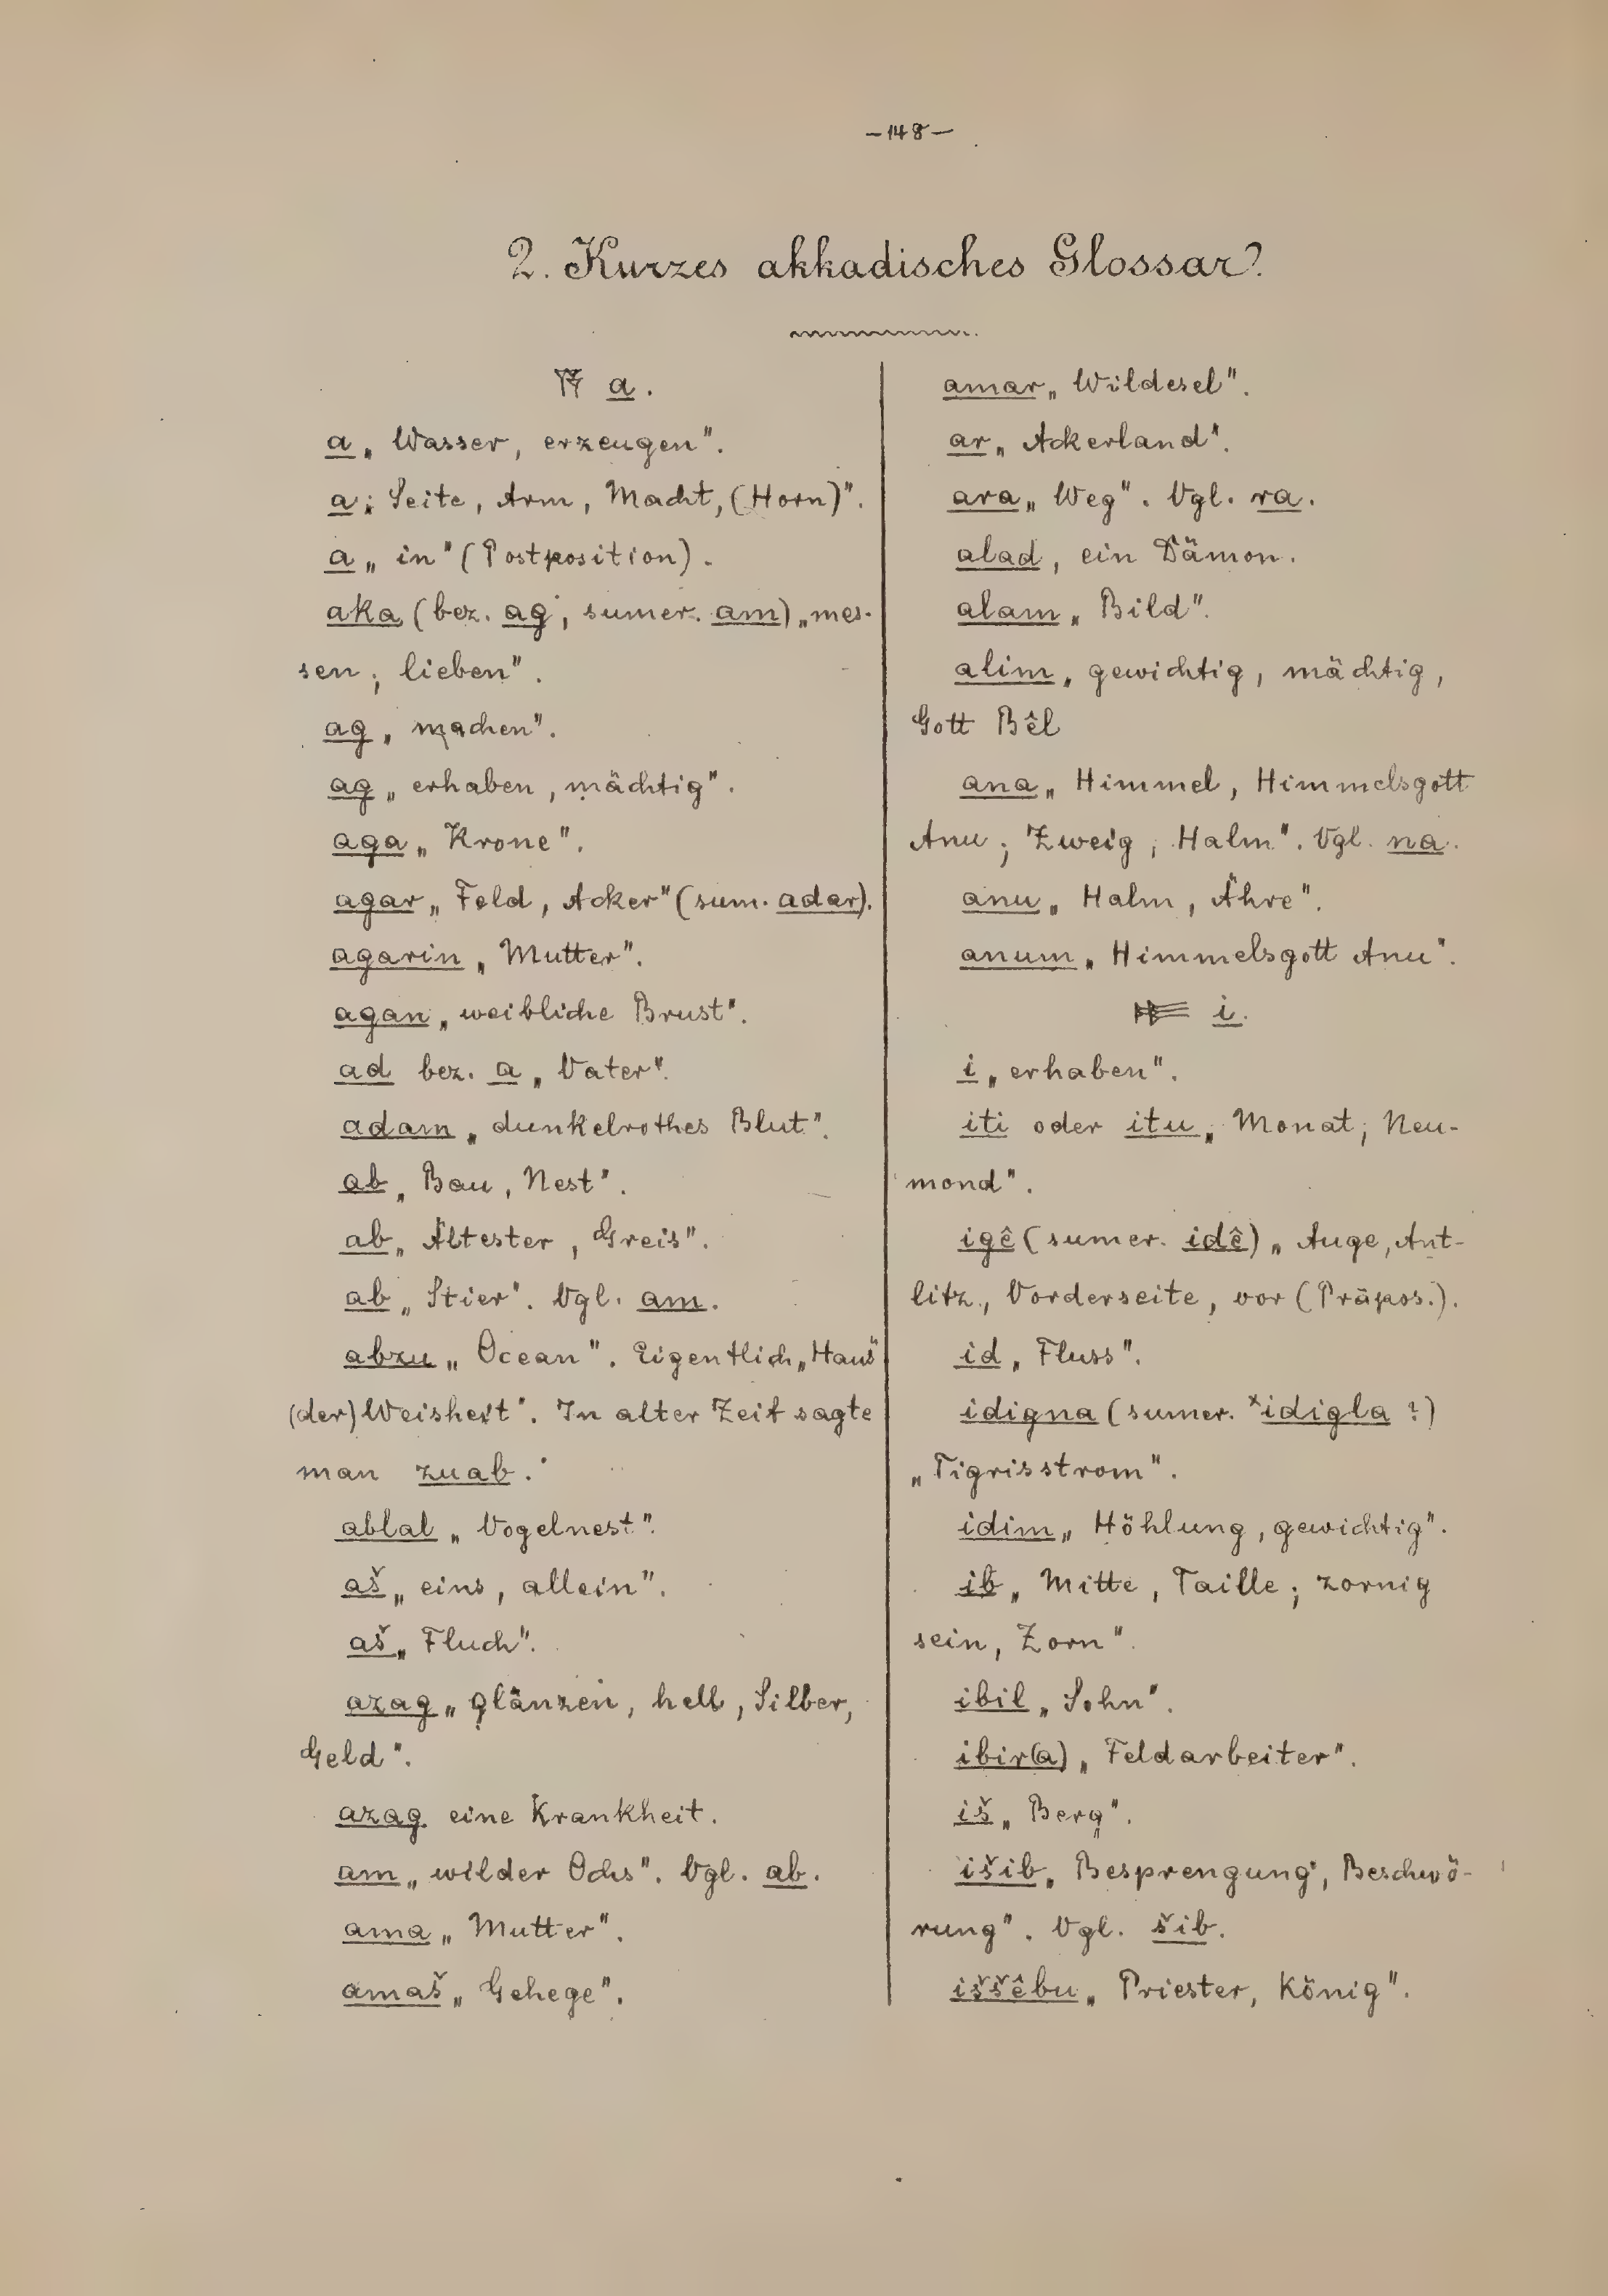 —148—
2. Kurzes akkadisches Glossar.
𒀀 a.
a „Wasser, erzeugen".
a „Seite, Arm, Macht, (Horn)".
a „in" (Postposition).
aka (bez. ag, sumer. am) „mes-
sen, lieben".
ag „machen".
ag „erhaben, mächtig".
aga „Krone".
agar „Feld, Acker" (sum. adar).
agarin „Mutter".
agan „weibliche Brust".
ad bez. a „Vater".
adam „dunkelrothes Blut".
ab „Bau, Nest".
ab „Ältester, Greis".
ab „Stier". Vgl. am.
abzu „Ocean". Eigentlich „Haus
(der) Weisheit". In alter Zeit sagte
man zuab.
ablal „Vogelnest".
aš „eins, allein".
aš „Fluch".
azag „glänzen, hell, Silber,
Geld".
azag eine Krankheit.
am „wilder Ochs". Vgl. ab.
ama „Mutter".
amaš „Gehege".
amar „Wildesel".
ar „Ackerland".
ara „Weg". Vgl. ra.
alad, ein Dämon.
alam „Bild".
alim „gewichtig, mächtig,
Gott Bêl
ana „Himmel, Himmelsgott
Anu; Zweig, Halm". Vgl. na.
anu „Halm, Ähre".
anum „Himmelsgott Anu".
𒄿 i.
i „erhaben".
iti oder itu „Monat; Neu-
mond".
igê (sumer. idê) „Auge, Ant-
litz, Vorderseite, vor (Präpos.).
id „Fluss".
idigna (sumer. *idigla ?)
„Tigrisstrom".
idim „Höhlung, gewichtig".
ib „Mitte, Taille; zornig
sein, Zorn".
ibil „Sohn".
ibir(a) „Feldarbeiter".
iš „Berg".
išib „Besprengung, Beschwö-
rung". Vgl. šib.
iššêbu „Priester, König".